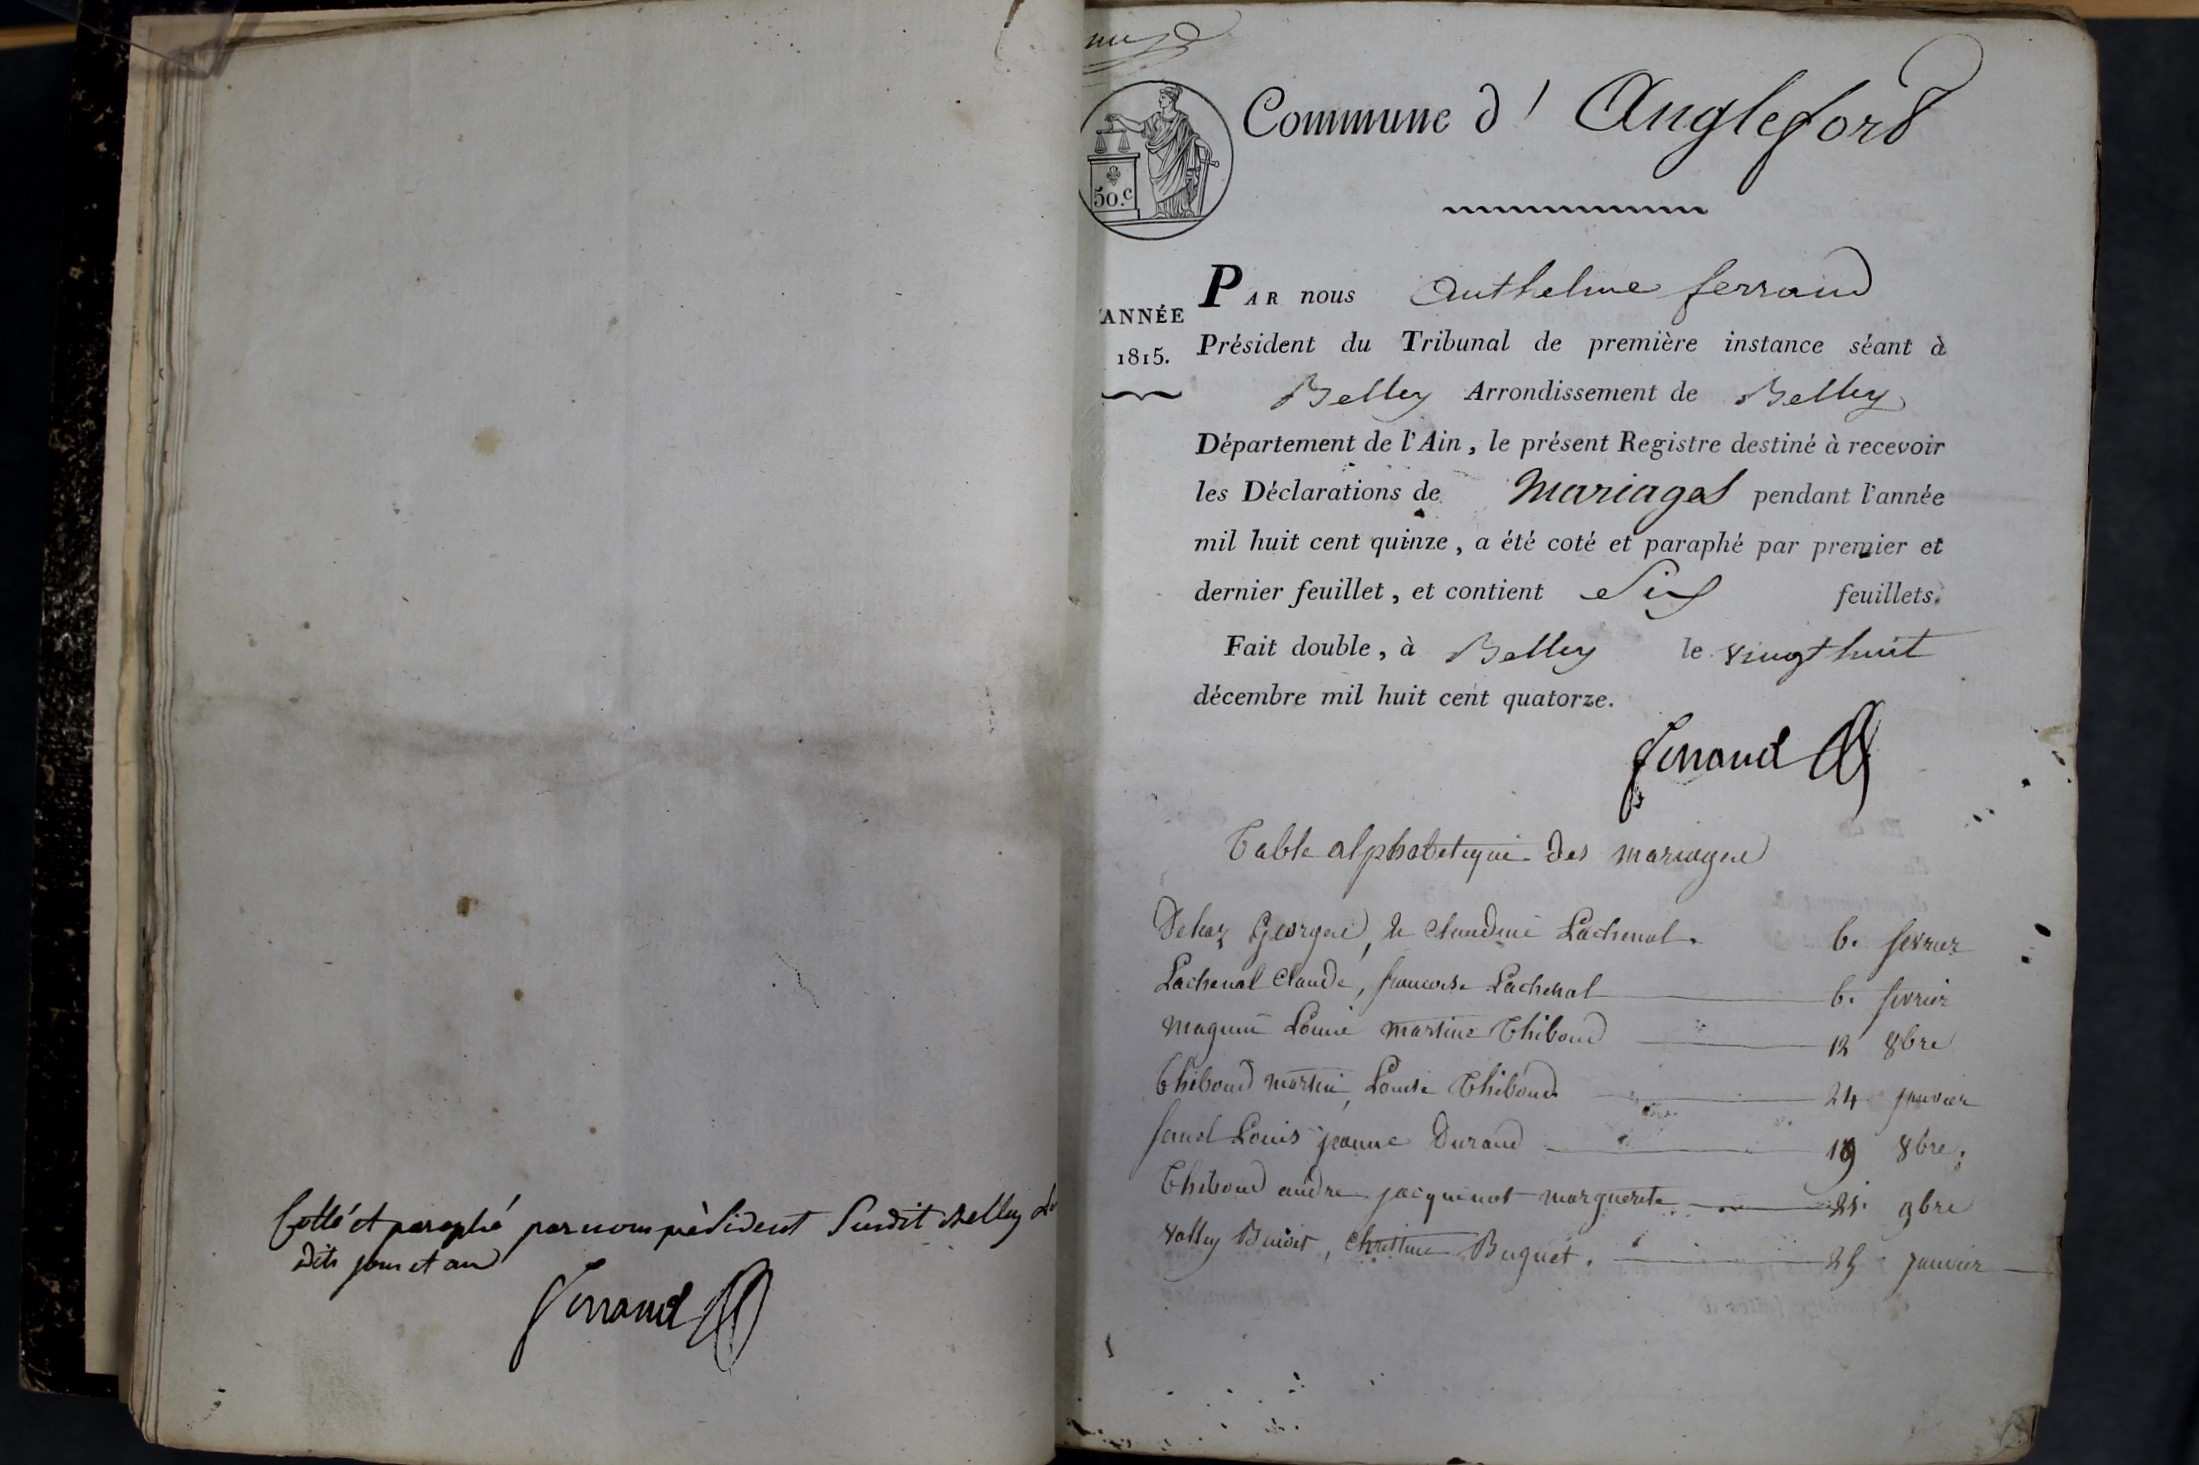 Cotté et paraphé par nous président susdit Belley les
dits jour et an
Ferrand
Commune d'Anglefort
50.c
ANNÉE
1815.
PAR nous Anthelme ferrand
Président du Tribunal de première instance séant à
Belley Arrondissement de Belley
Département de l'Ain, le présent Registre destiné à recevoir
les Déclarations de Mariages pendant l'année
mil huit cent quinze, a été coté et paraphé par premier et
dernier feuillet, et contient Six feuillets.
Fait double, à Belley le vingt huit
décembre mil huit cent quatorze.
ferrand
Table alphabetique des mariages
George, et Claudine Lachenal. 6. fevrier
Lachenal Claude, francoise Lachenal 6. fevrier
Louis martine Thiboud 12 8bre
Thiboud martin, Louise Thiboud 24 janvier
Louis jeanne Durand 19 8bre.
Thiboud andre jacquenot marguerite 9bre
Valley Benoit, Christine Buguet. 25 janvier